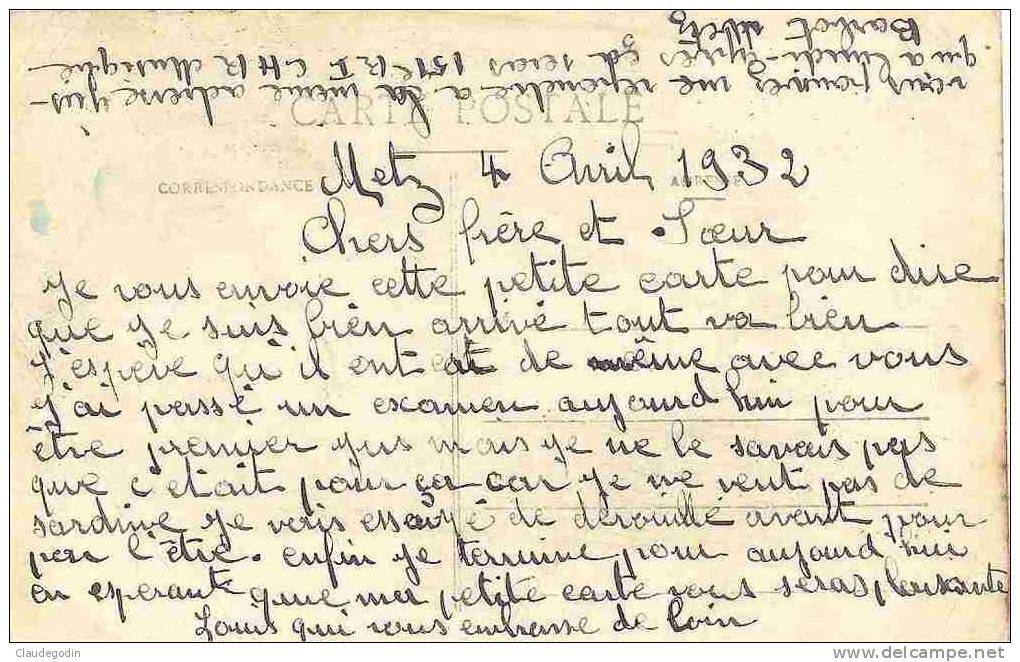 CARTE POSTALE
CORRESPONDANCE
ADRESSE
Metz 4 Avril 1932
Chers frère et Sœur
Je vous envoie cette petite carte pour dire
que je suis bien arrivé tout va bien
J'espère qu'il ent est de même avec vous
J'ai passé un examen aujourd'hui pour
être premier jus mais je ne le savais pas
que c'était pour ça car je ne vent pas de
sardine je vais essayé de derouillé avant pour
pas l'être. enfin je termine pour aujourd'hui
en esperant que ma petite carte vous seras plaisante
Louis qui vous embrasse de loin
vous pouvez me repondre a la même adresse jus-
qu'a lundi après ça seras 151e R I C H R Musique
Barbot Metz
Claudegodin
www.delcampe.net